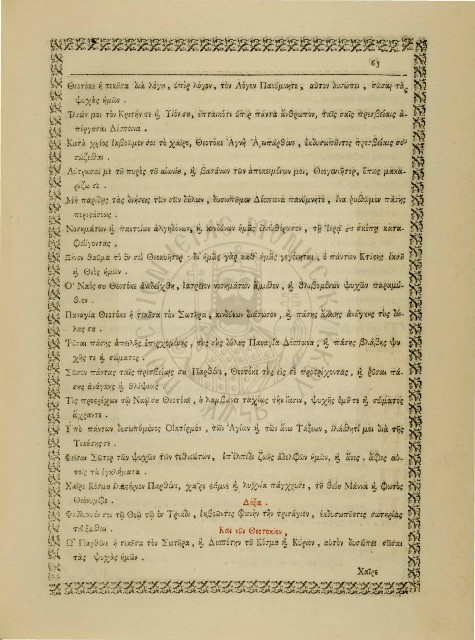 63
Θεοτόκε ἡ τεκοῦσα διὰ λόγου, ὑπὲρ λόγον, τὸν Λόγον Πανύμνητε, αὐτὸν δυσώπει, σῶσαι τὰς
ψυχὰς ἡμῶν.
μοι τὸν Κριτήν τε καὶ Υἱόν σου, ὑπὲρ πάντα ἄνθρωπον, ταῖς σαῖς πρεσβείαις
Δέσποινα.
Κατὰ χρέος ἐκβοῶμεν σοι τὸ χαῖρε, Θεοτόκε Ἁγνὴ Ἀειπάρθενε, ἐκδυσωποῦντες πρεσβείαις σου
σώζεσθαι.
Λύτρωσαί με τοῦ πυρὸς τοῦ αἰωνίου, καὶ βασάνων τῶν ἀποκειμένων μοι, Θεογεννῆτορ, ὅπως μακα-
ρίζω σε.
Μὴ παρίδῃς τὰς δεήσεις τῶν σῶν δούλων, δυσωποῦμεν Δέσποινα πανύμνητε, ἵνα ῥυσθῶμεν πάσης
περιστάσεως.
Νοσημάτων καὶ παντοίων ἀλγηδόνων, καὶ κινδύνων ἡμᾶς ἐλευθέρωσον, τῇ Ἱερᾷ σου σκέπῃ κατα-
φεύγοντας.
Ξένον θαῦμα τὸ ἐν σοὶ Θεοκυῆτορ· δι' ἡμᾶς γὰρ καθ' ἡμᾶς γεγέννηται, ὁ πάντων Κτίστης ἐκ σοῦ
καὶ Θεὸς ἡμῶν.
Ὁ Ναός σου Θεοτόκε ἀνεδείχθη, ἰατρεῖον νοσημάτων ἄμισθον, καὶ θλιβομένων ψυχῶν παραμύ-
θιον.
Παναγία Θεοτόκε ἡ τεκοῦσα τὸν Σωτῆρα, κινδύνων διάσωσον, καὶ πάσης ἄλλης ἀνάγκης τοὺς δού-
λους σου.
Ῥῦσαι πάσης ἀπειλῆς ἐπερχομένης, τοὺς σοὺς δούλους Παναγία Δέσποινα, καὶ πάσης βλάβης ψυ-
χῆς τε καὶ σώματος.
Σῶσον πάντας ταῖς πρεσβείαις σου Παρθένε, Θεοτόκε τοὺς εἰς σὲ προστρέχοντας, καὶ ῥῦσαι πά-
σης ἀνάγκης καὶ θλίψεως.
Τίς προστρέχων τῷ Ναῷ σου Θεοτόκε, οὐ λαμβάνει ταχίως τὴν ἴασιν, ψυχῆς ὁμοῦ τε καὶ σώματος
ἄχραντε.
Ὑπὸ πάντων δυσωπούμενος Οἰκτίρμον, τῶν Ἁγίων καὶ τῶν ἄνω Τάξεων, ἱλάσθητί μοι διὰ τῆς
Τεκούσης σε.
Φεῖσαι Σῶτερ τῶν ψυχῶν τῶν τεθνεώτων, ἐπ' ἐλπίδι ζωῆς ἀδελφῶν ἡμῶν, καὶ ἄνες, ἄφες αὐ-
τοῖς τὰ ἐγκλήματα.
Χαῖρε Κόσμου ἱλαστήριον Παρθένε, χαῖρε στάμνε καὶ λυχνία πάγχρυσε, τοῦ θείου Μάννα καὶ φωτὸς
Θεόνυμφε.
Δόξα.
Ψάλλομέν σοι τῷ Θεῷ τῷ ἐν Τριάδι, ἐκβοῶντες φωνὴν τὴν τρισάγιον, ἐκδυσωποῦντες σωτηρίας
τυχεῖν.
Καὶ νῦν Θεοτοκίον.
Ὦ Παρθένε ἡ τεκοῦσα τὸν Σωτῆρα, καὶ Δεσπότην τοῦ Κόσμου καὶ Κύριον, αὐτὸν δυσώπει σῶσαι
τὰς ψυχὰς ἡμῶν.
Χαῖρε